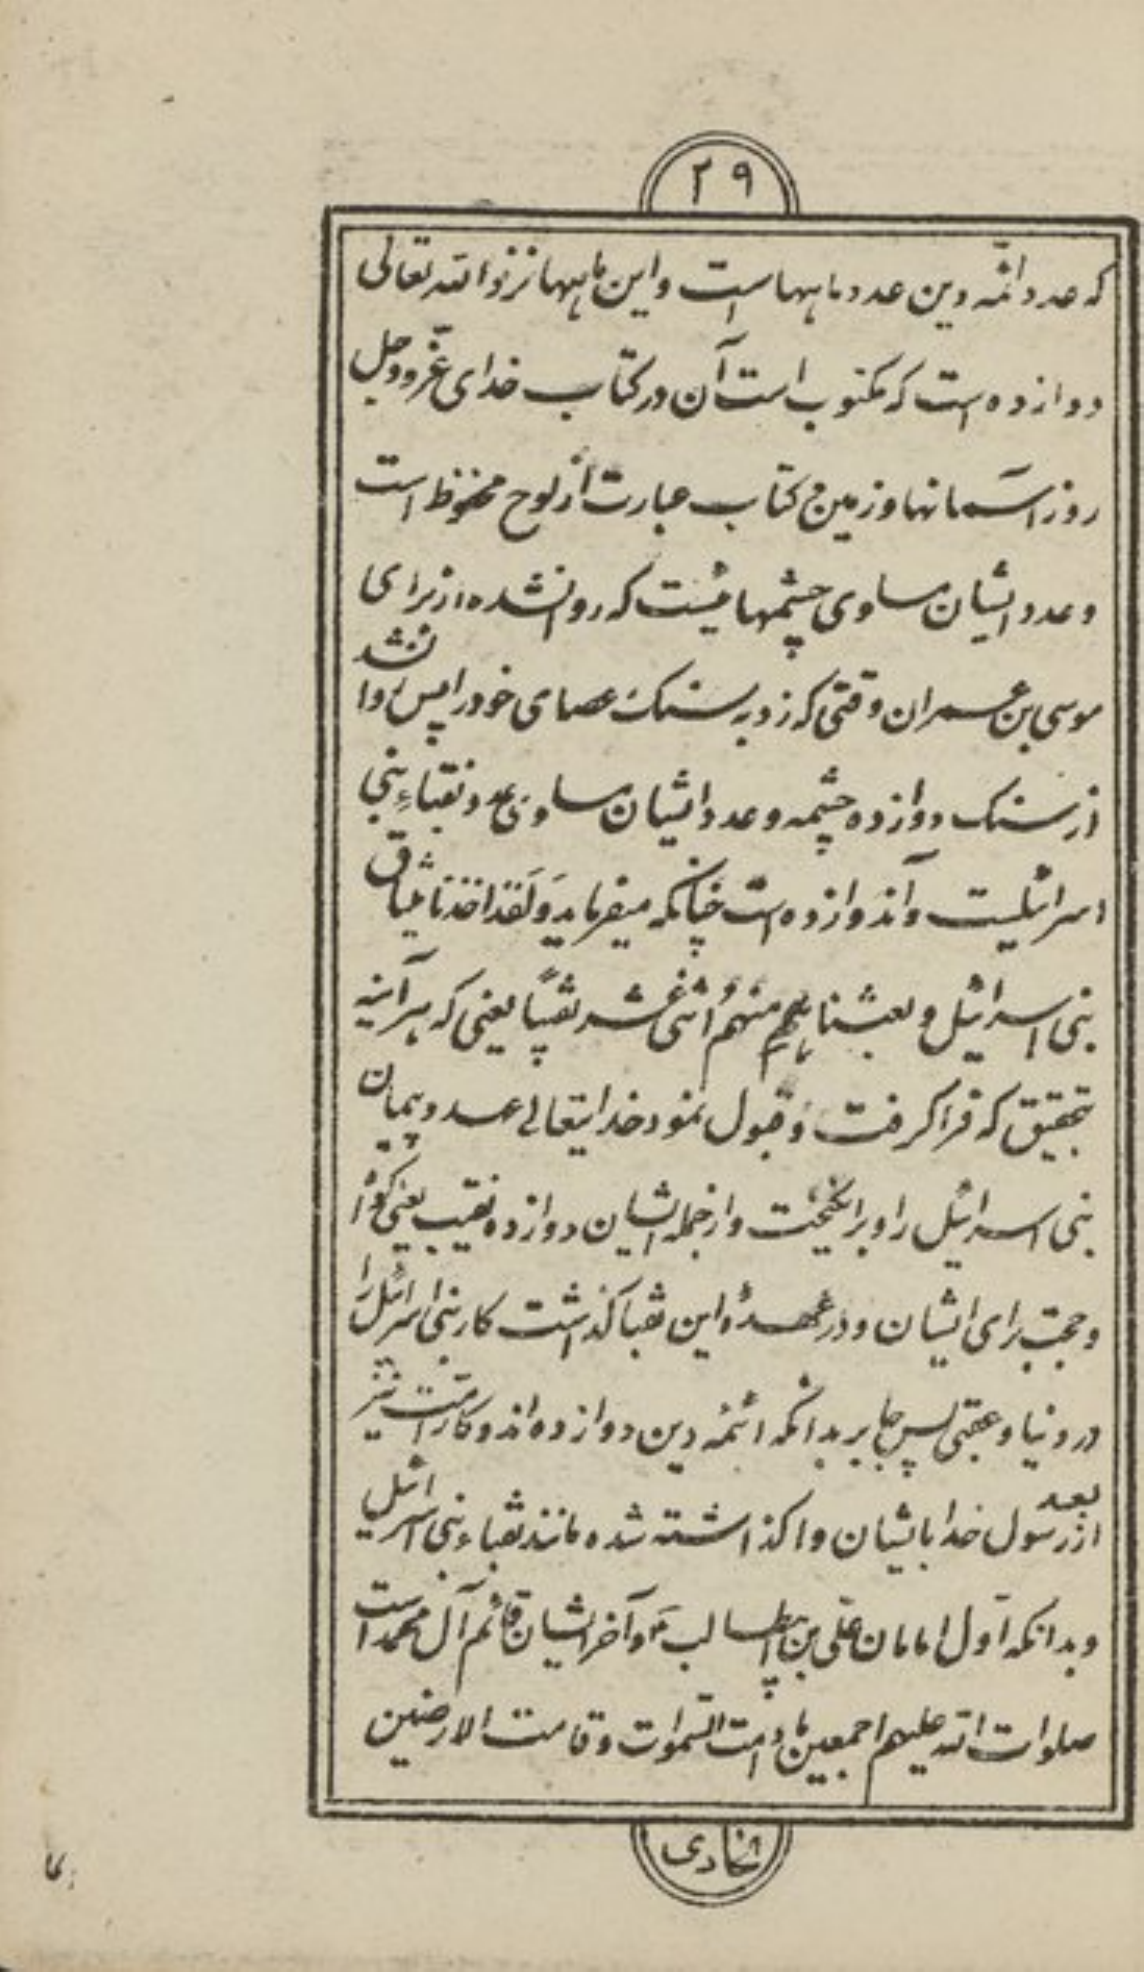 ۲۹
که عدد ائمّه دین عدد ماهها است و این ماهها نزد الله تعالی
دوازده است که مکتوب است آن در کتاب خدای عزّ و جل
روز اسمانها و زمین و کتاب عبارت از لوح محفوظ است
و عدد ایشان مساوی چشمهائیست که روانشده از برای
موسی بن عمران وقتی که زد به سنک عصای خود را پس روانشد
از سنک دوازده چشمه و عدد ایشان مساوی عدد نقباء بنی
اسرائیلست و آن دوازده است چنانکه میفرماید وَلَقَد اخذنا میثاق
بنی اسرائیل و بعثنا مِنهُم اثنی عشر نقیباً یعنی که هر آینه
بتحقیق که فرا کرفت و قبول نمود خدایتعالی عهد و پیمان
بنی اسرائیل را و برانکیخت و از جمله ایشان دوازده نقیب یعنی کواه
و حجت برای ایشان و در عهدهٔ این نقبا کذاشت کار بنی اسرائیل را
در دنیا و عقبی پس جابر بدانکه ائمهٔ دین دوازده اند و کار امت نیز
بعد از رسول خدا بایشان واکذاشته شده مانند نقباء بنی اسرائیل
و بدانکه اوّل امامان علّی بن ابیطالب و آخر ایشان قائم آل محمد است
صلوات الله علیهم اجمعین ما دامت السّموات و قامت الارضین